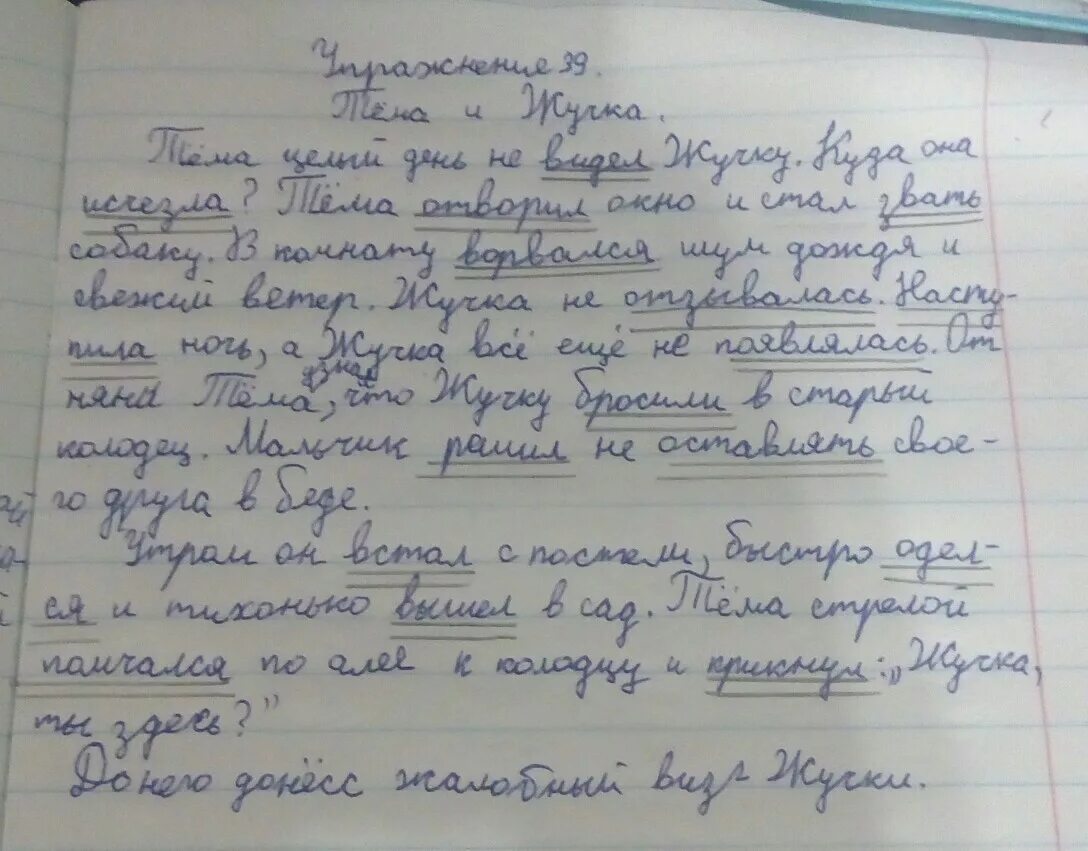 Упражнение 39.
Тёма и Жучка.
Тёма целый день не видел Жучку. Куда она
исчезла? Тёма отворил окно и стал звать
собаку. В комнату ворвался шум дождя и
свежий ветер. Жучка не отзывалась. Насту-
пила ночь, а Жучка всё ещё не появлялась. От
няни Тёма узнал, что Жучку бросили в старый
колодец. Мальчик рашил не оставлять свое-
го друга в беде.
Утром он встал с постели, быстро одел-
ся и тихонько вышел в сад. Тёма стрелой
помчался по алее к колодцу и крикнул: „Жучка,
ты здесь?”
До него донёсс жалобный визг Жучки.